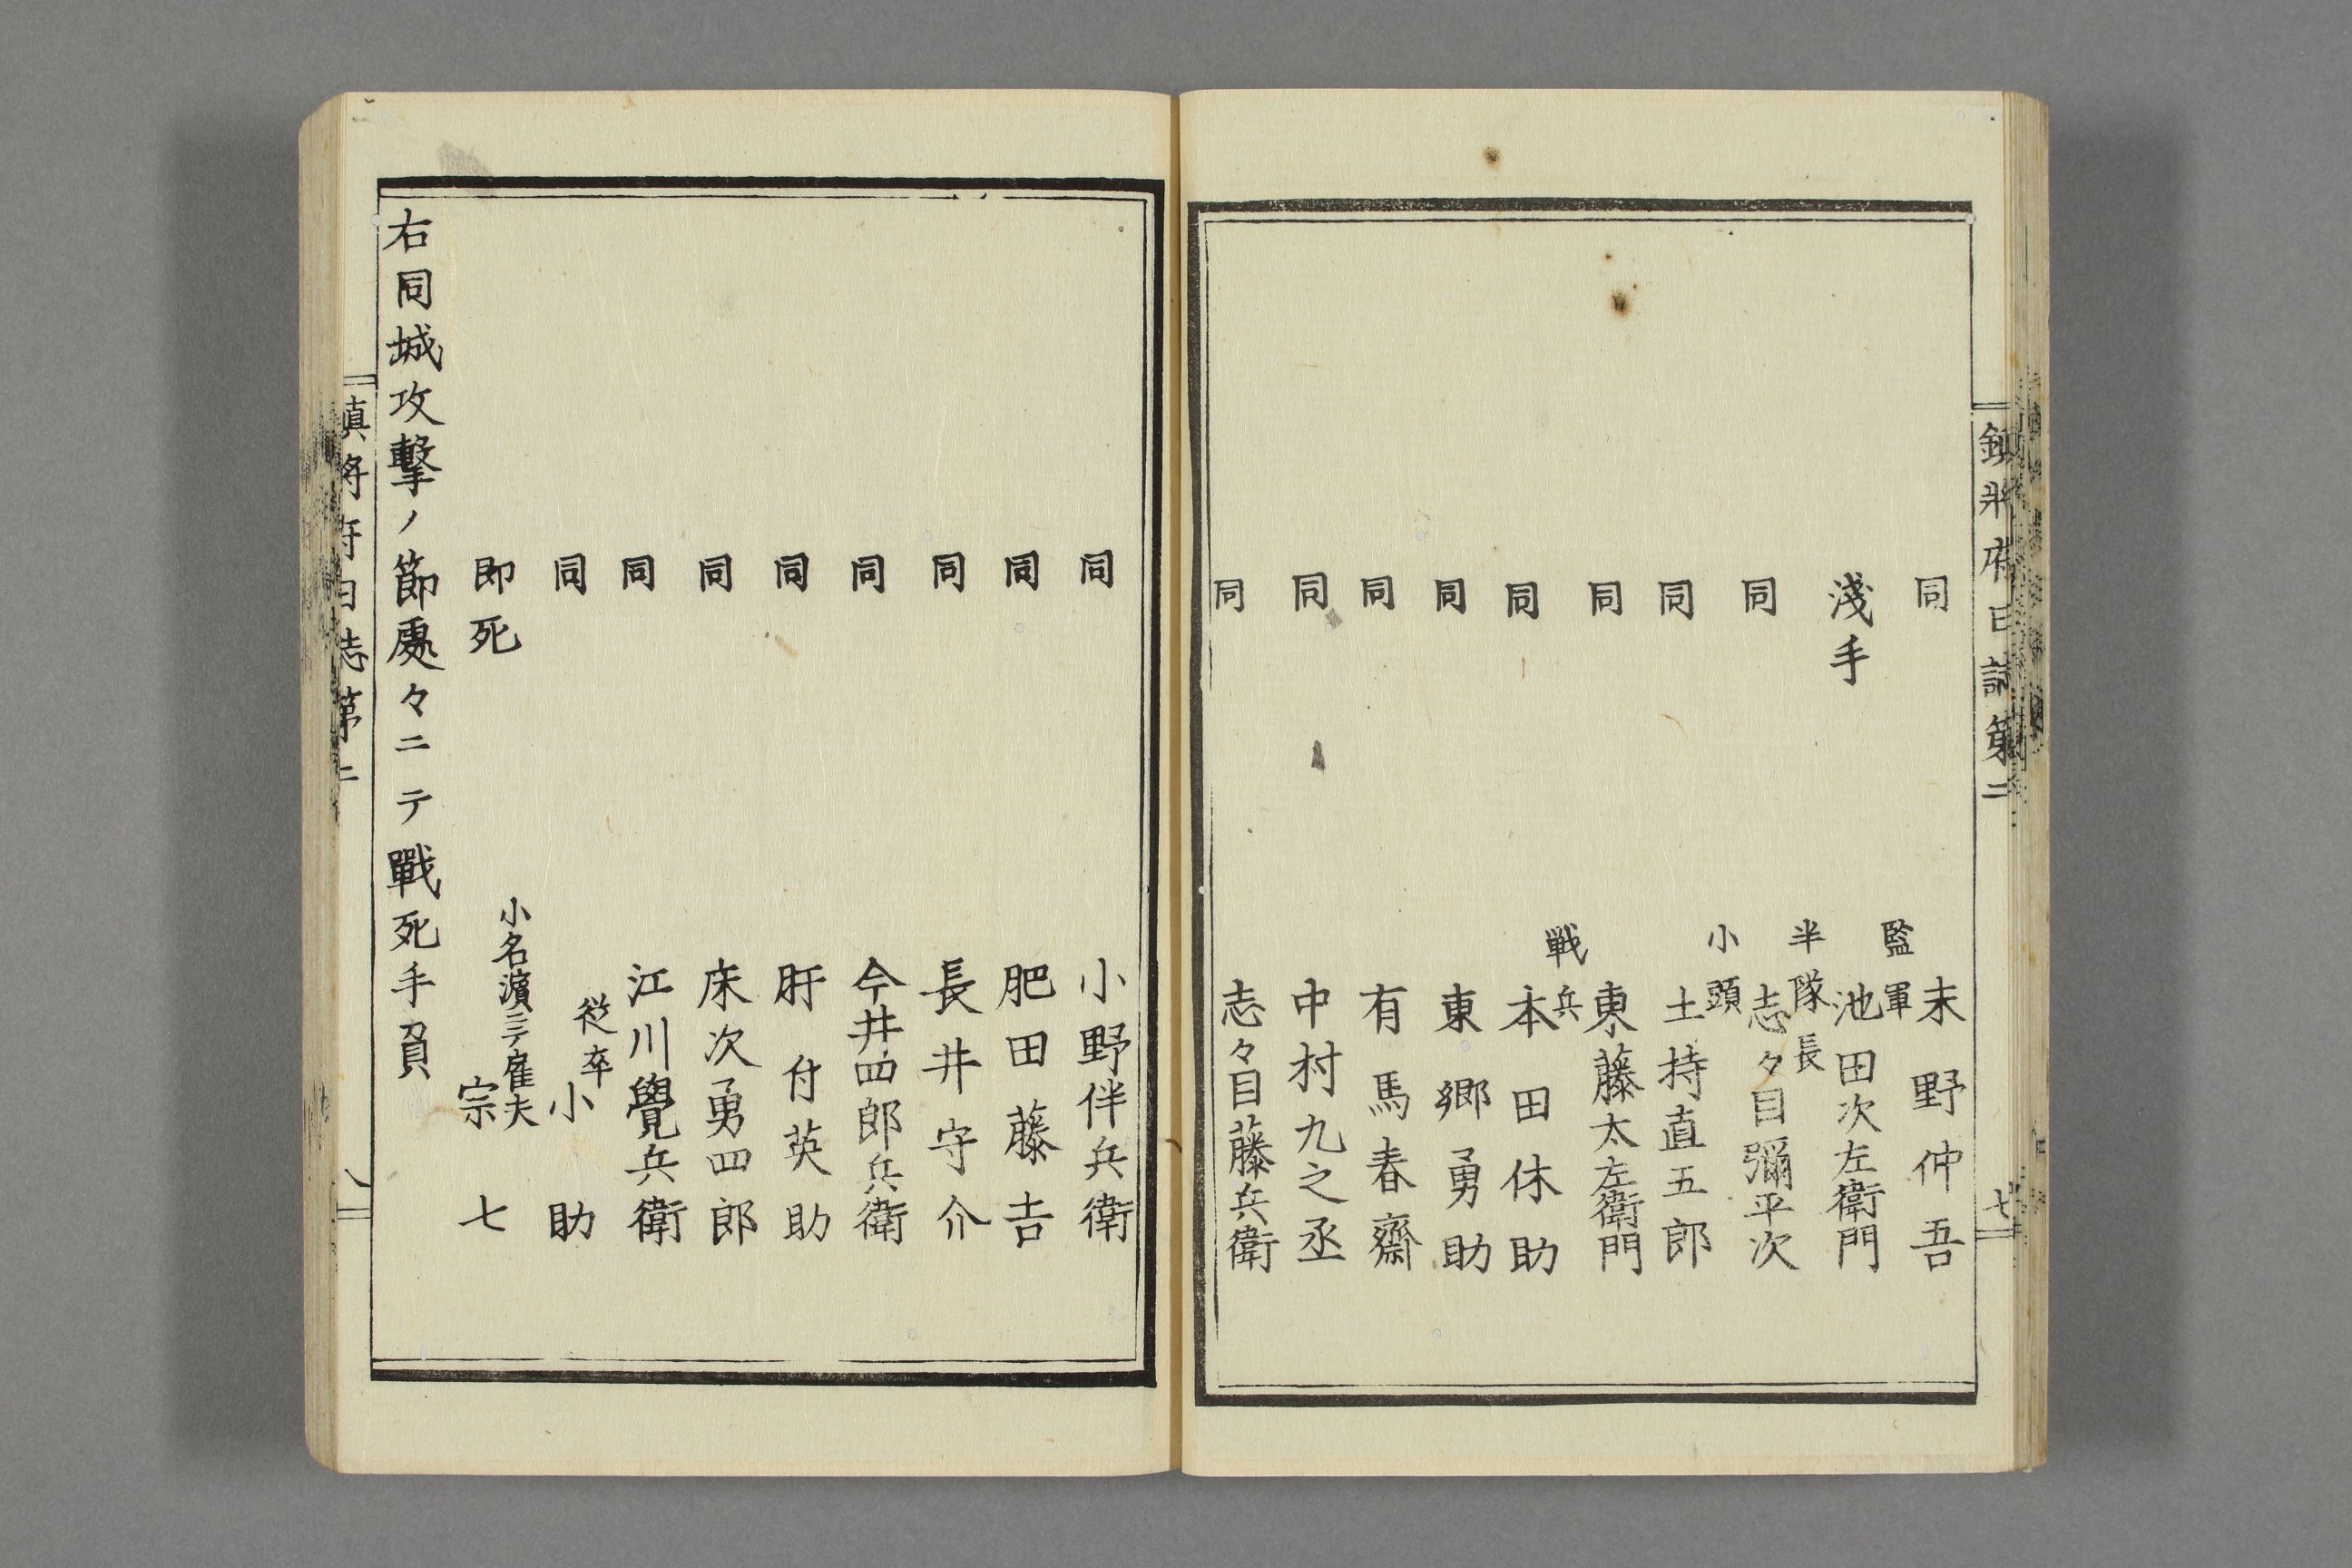 鎮將府日誌第二 七
同 末野仲吾
淺手 監軍 池田次左衛門
同 半隊長 志々目彌平次
同 小頭 土持直五郎
同 東藤太左衛門
同 戦兵 本田休助
同 東郷勇助
同 有馬春齋
同 中村九之丞
同 志々目藤兵衛
同 小野伴兵衛
同 肥田藤吉
同 長井守介
同 今井四郎兵衛
同 肝付英助
同 床次勇四郎
同 江川覺兵衛
同 從卒 小助
即死 小名濱ニテ雇夫 宗七
右同城攻撃ノ節處々ニテ戰死手負
鎮將府日誌第二 八